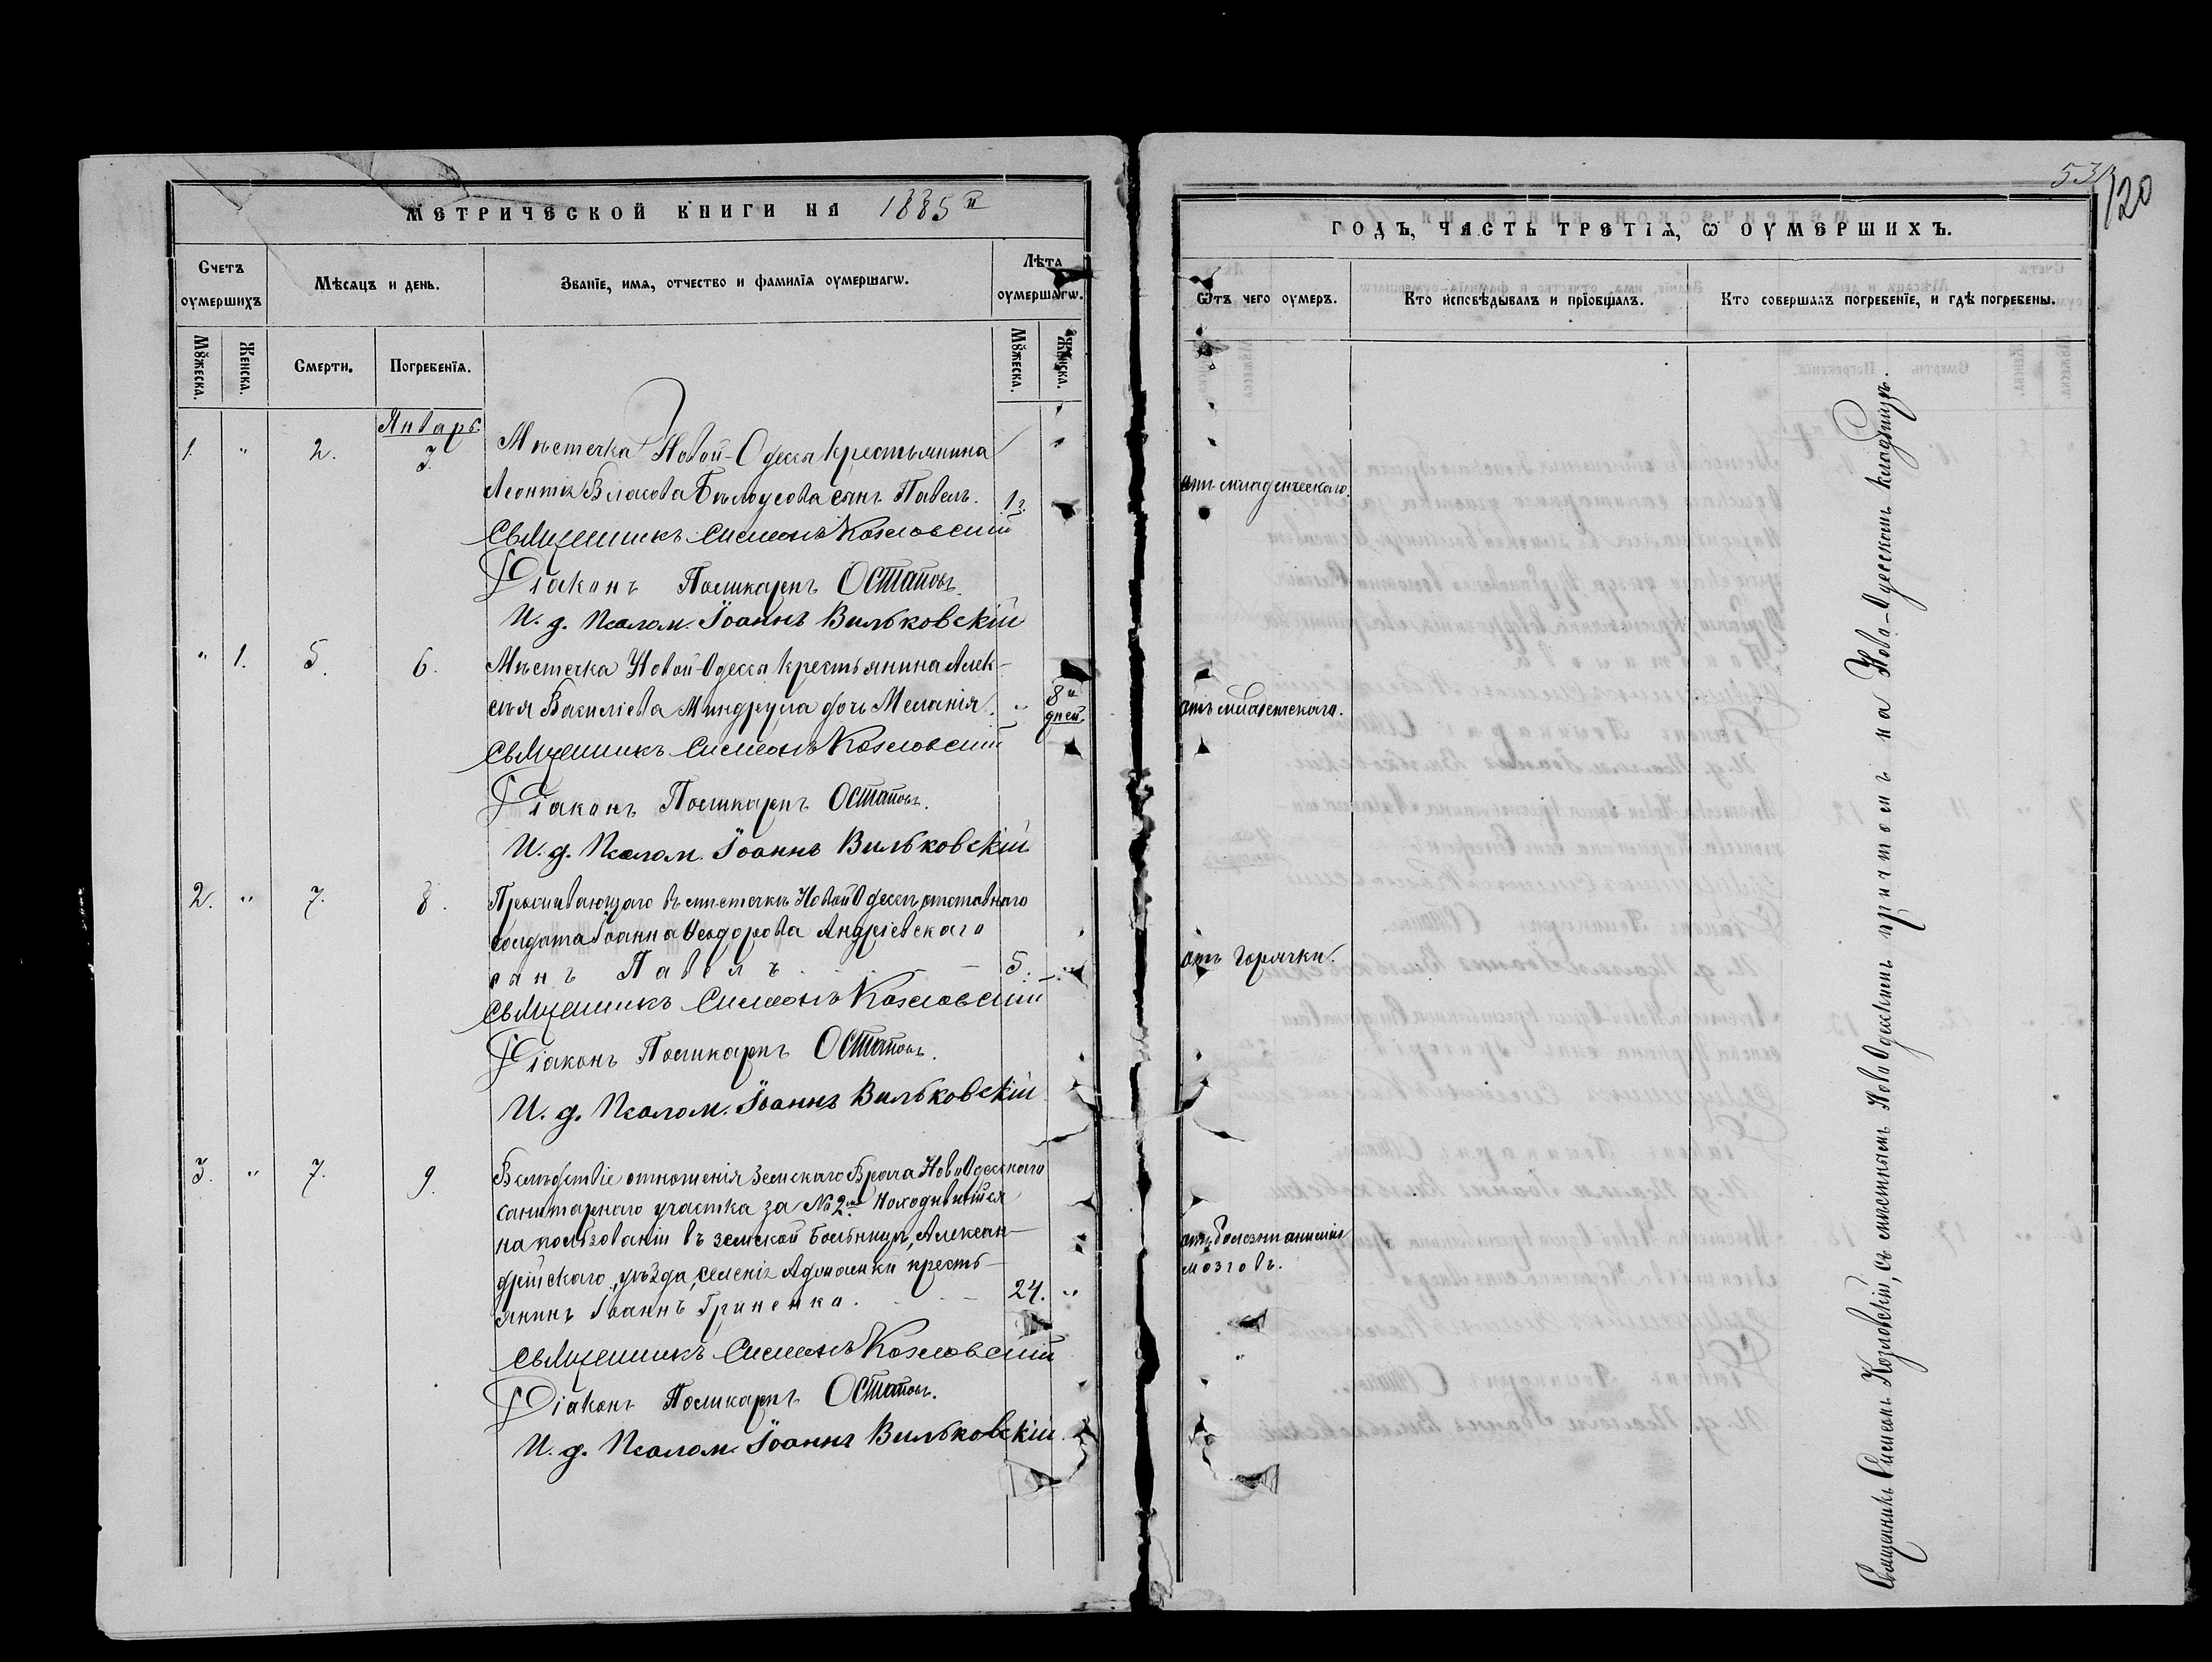 МЕТРИЧЕСКОЙ КНИГИ НА 1885й
Счетъ оумершихъ
Мѣсяцъ и день.
Званїе, имя, отчество и фамилїя оумершагѡ.
Лѣта оумершагѡ.
Мꙋжеска.
Женска.
Смерти.
Погребенїя.
Мꙋжеска.
Женска.
Январь
1. " 2. 3. Мѣстечка Новой-Одессы крестьянина
Леонтія Власова Бѣлоусова сынъ Павелъ. 1 г.
Священникъ Симеонъ Козловскій
Діаконъ Поликарпъ Остапов.
И. д. Псалом. Іоаннъ Вильковскій
" 1. 5. 6. Мѣстечка Новой-Одессы крестьянина Алек-
сѣя Василіева Миндрула дочь Меланія. " 8и дней.
Священникъ Симеонъ Козловскій
Діаконъ Поликарпъ Остапов.
И. д. Псалом. Іоаннъ Вильковскій
2. " 7. 8. Проживающаго въ мѣстечкѣ Новой Одессѣ, отставнаго
солдата Іоанна Ѳеодорова Андріевскаго
сынъ Павелъ. 5. "
Священникъ Симеонъ Козловскій
Діаконъ Поликарпъ Остапов.
И. д. Псалом. Іоаннъ Вильковскій
3. " 7. 9. Вслѣдствіе отношенія Земскаго Врача Ново Одесскаго
санитарнаго участка за № 2м находившійся
на пользованіи въ земской больницѣ, Алексан-
дрійскаго уѣзда, селенія кресть-
янинъ Іоаннъ Гриненка. 24. "
Священникъ Симеонъ Козловскій
Діаконъ Поликарпъ Остапов.
И. д. Псалом. Іоаннъ Вильковскій
120
ГОДЪ, ЧАСТЬ ТРЕТІѦ, Ѡ ОУМЕРШИХЪ.
Ѿтъ чего оумеръ.
Кто исповѣдывалъ и прїобщалъ.
Кто совершалъ погребенїе, и гдѣ погребены.
отъ младенческаго.
отъ младенческаго.
отъ горячки.
отъ болезни анеміи
мозговъ.
Священникъ Симеонъ Козловскій, съ мѣстнымъ Ново Одесскимъ причтомъ на Ново-Одесскомъ кладбищѣ.